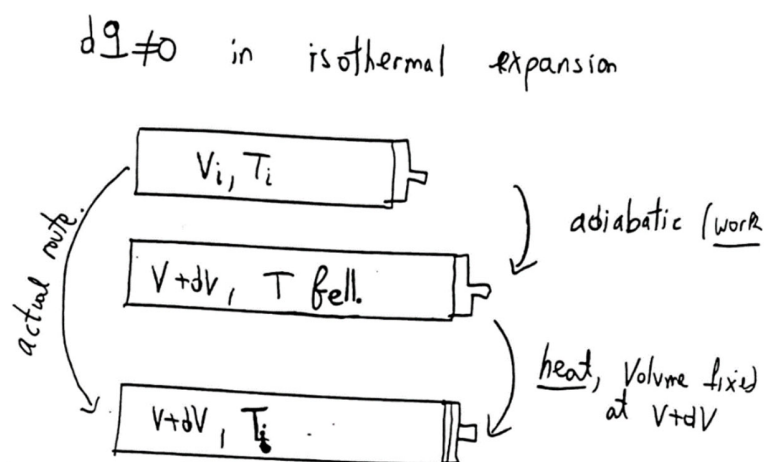 dq≠0 in isothermal expansion
Vi, Ti
adiabatic (work
actual route.
V+dV, T fell.
heat, Volume fixed
at V+dV
V+dV, Ti